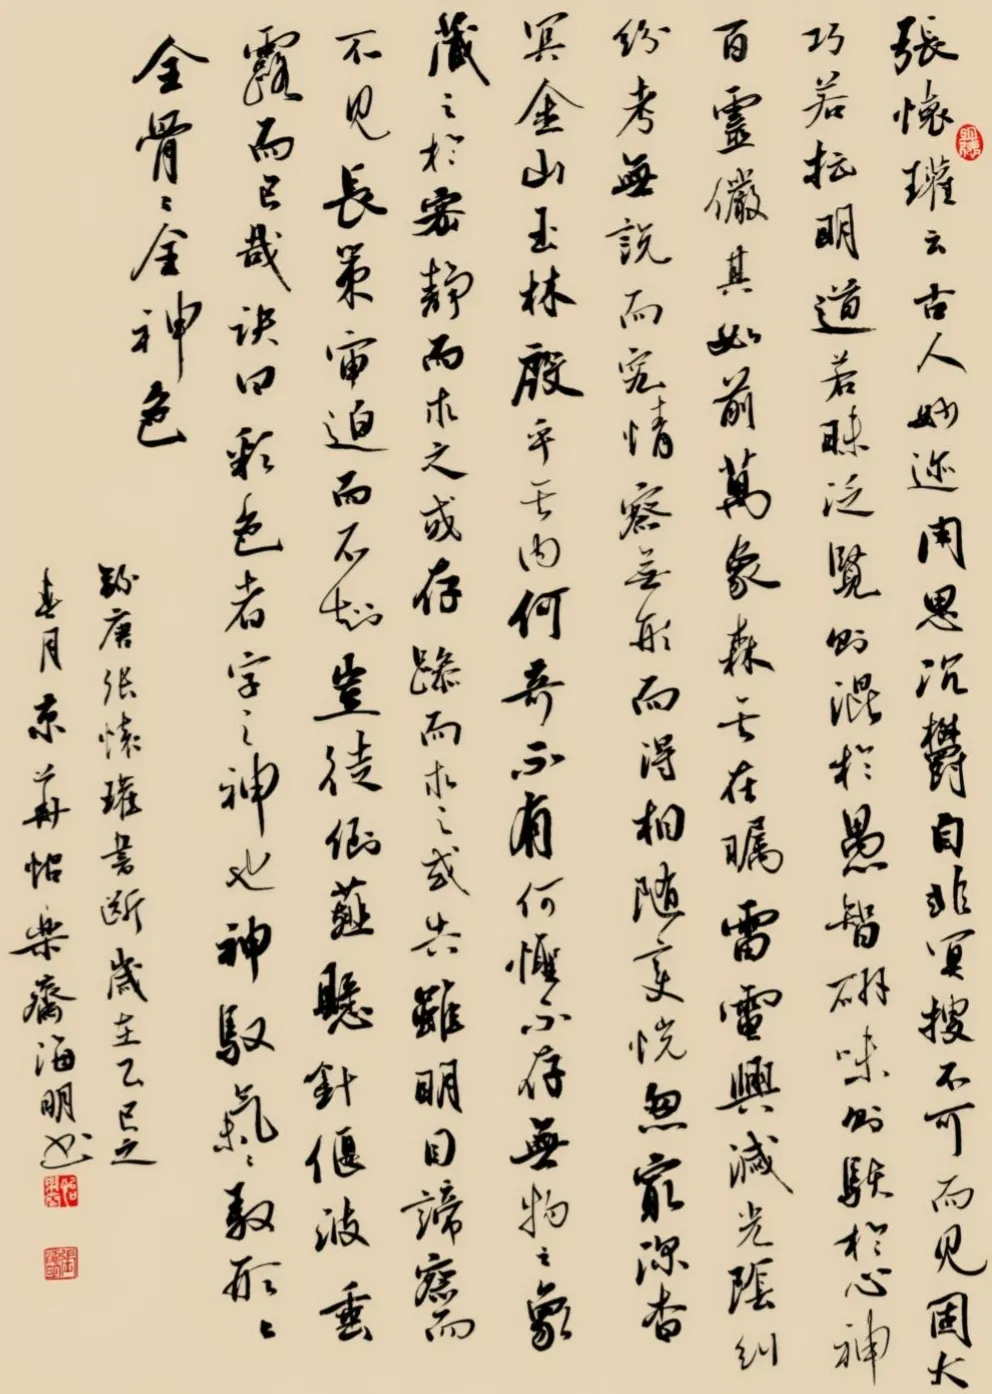 張懷瓘云古人妙迹用思沉鬱自非冥搜不可而見固大
巧若拙明道若昧泛覽則混於愚智研味則駭於心神
百靈儼其如前萬象森其在矚雷電興滅光陰糾
紛考無說而究情察無形而得相隨變恍忽窮深杳
冥金山玉林殷乎其內何奇不有何怪不存無物之象
藏之於密靜而求之或存躁而求之或失雖明目諦察而
不見長策審迫而不知豈徒倒薤懸針偃波垂
露而已哉訣曰彩色者字之神也神馭氣氣馭形形
全骨骨全神色
錄唐張懷瓘書斷歲在乙巳之
春月京華怡樂齋海明書